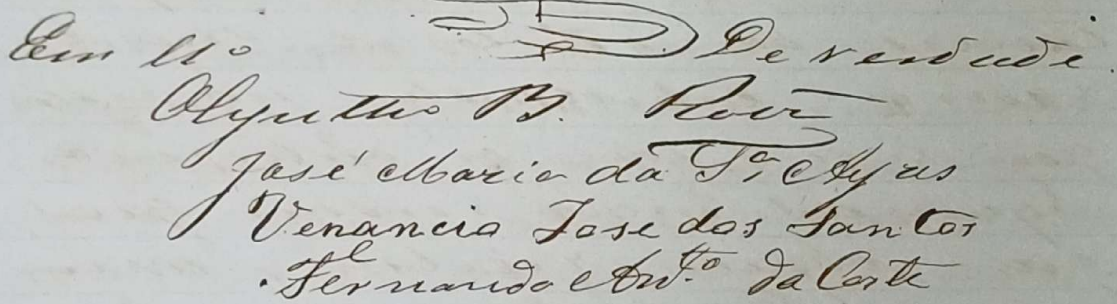 Em tt.º De verdade.
Olyntho B. Roiz
José Maria da S.ª Ayres
Venancio Jose dos Santos
Fernando Ant.to da Costa